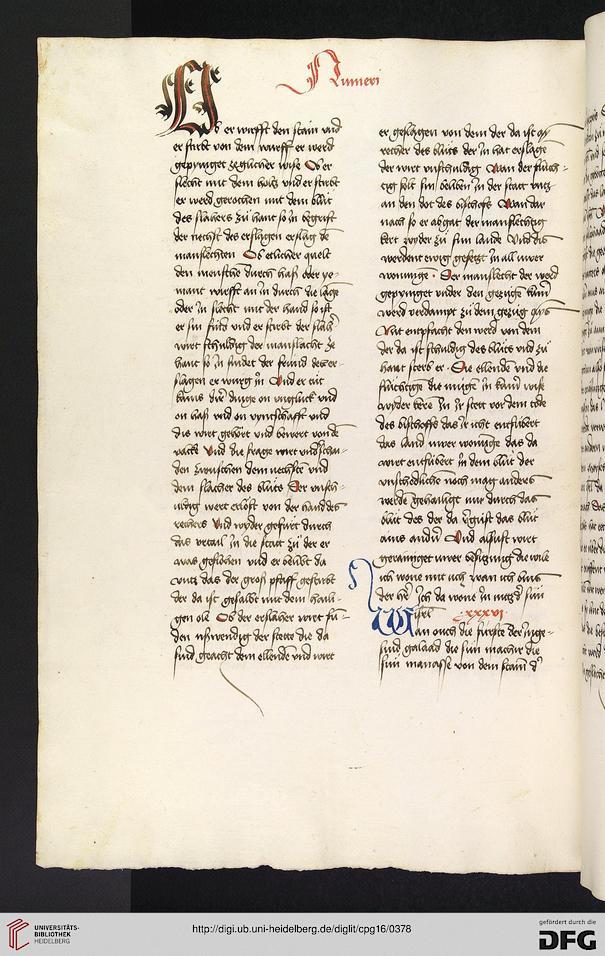 Numeri
Ob er wirfft den stain vnd
er stirbt von dem wurff er werd
gepyniget zeglicher wise Ob er
slecht mit dem holtz vnd er stirbt
er werd gerochen mit dem blůt
des slahers zů hant so in begrift
der nechst des erslagen erslag de
manslechten Ob etlicher quelt
den menschen durch haß oder ye-
mant wirfft an in durch die
oder in slecht mit der hand so ist
er sin find vnd er stirbt der
wirt schuldig der manslacht ze
hant so in findet der fruind des er-
slagen er wurg in Vnd er tůt
dise dinge on vngluck vnd
on haß vnd on vyntschafft vnd
dis wirt gehört vnd bewert von de
vnd die frage wirt
den zwuschen dem nechsten vnd
dem slacher des blůtes Der vnsch-
uldig wert erlöst von der hand des
rechers vnd wyder gefůrt durch
das vrtail in die statt zů der er
was geflohen vnd er belibt da
vntz das der groß pfaff gestirbt
der da ist gesalbt mit dem haili-
gen öle Ob der erslaher wirt fun-
den vswendig der stette die da
sind geacht dem ellende vnd wirt
er geslagen von dem der da ist
recher des blůtes der in hat erslage
der wirt vnschuldig Wan der flůch-
tig solt sin beliben in der statt vntz
an den dot des bischoffs Wan dar
nach so er abgat der manslechtig
kert wyder zů sim lande Vnd dis
werdent ewig gesetzt in all uwer
wonunge Der manslecht der werd
gepyniget vnder den gezügen kain
werd verdampt zů dem gezüg
Nit entpfacht den werd von dem
der da ist schuldig des blůtes vnd zů
hant sterb er Die ellende vnd die
flüchtige die mügen in kain wise
wyder keren in ir stett vor dem tode
des bischoffes das ir nicht entsübert
das land uwer wonunge das da
wirt entsübert in dem blůt der
vnschedlichen noch mag anders
werden gehailigt nur durch das
blůt des der da vergüst das blůt
ains andern Vnd alsust wirt
gerainiget uwer besitzung die wile
ich wone mit uch wan ich bins
der herr Ich da wone in mitz der sun
isrl xxxvi
Wan ouch die fürsten der inge-
sind galaad die sün machir die
sün manasse von dem stamm
UNIVERSITÄTS-
BIBLIOTHEK
HEIDELBERG
http://digi.ub.uni-heidelberg.de/diglit/cpg16/0378
gefördert durch die
DFG